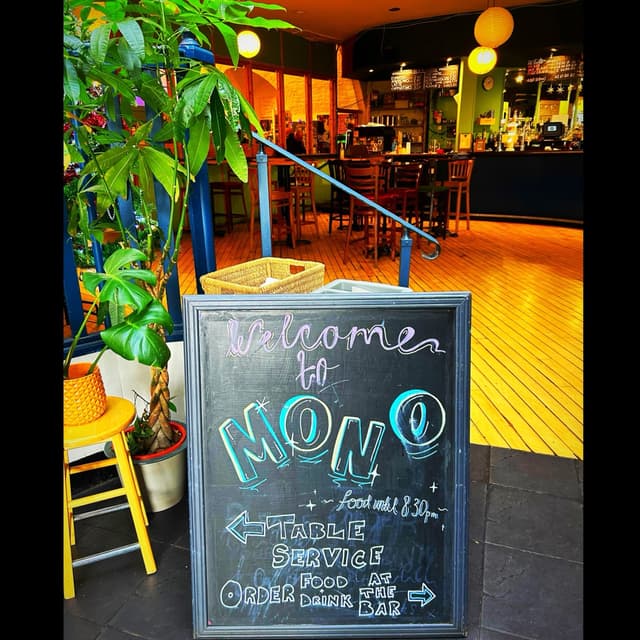 Welcome
to
MONO
food until 8 30pm
← TABLE
SERVICE
ORDER FOOD + DRINK AT THE BAR →